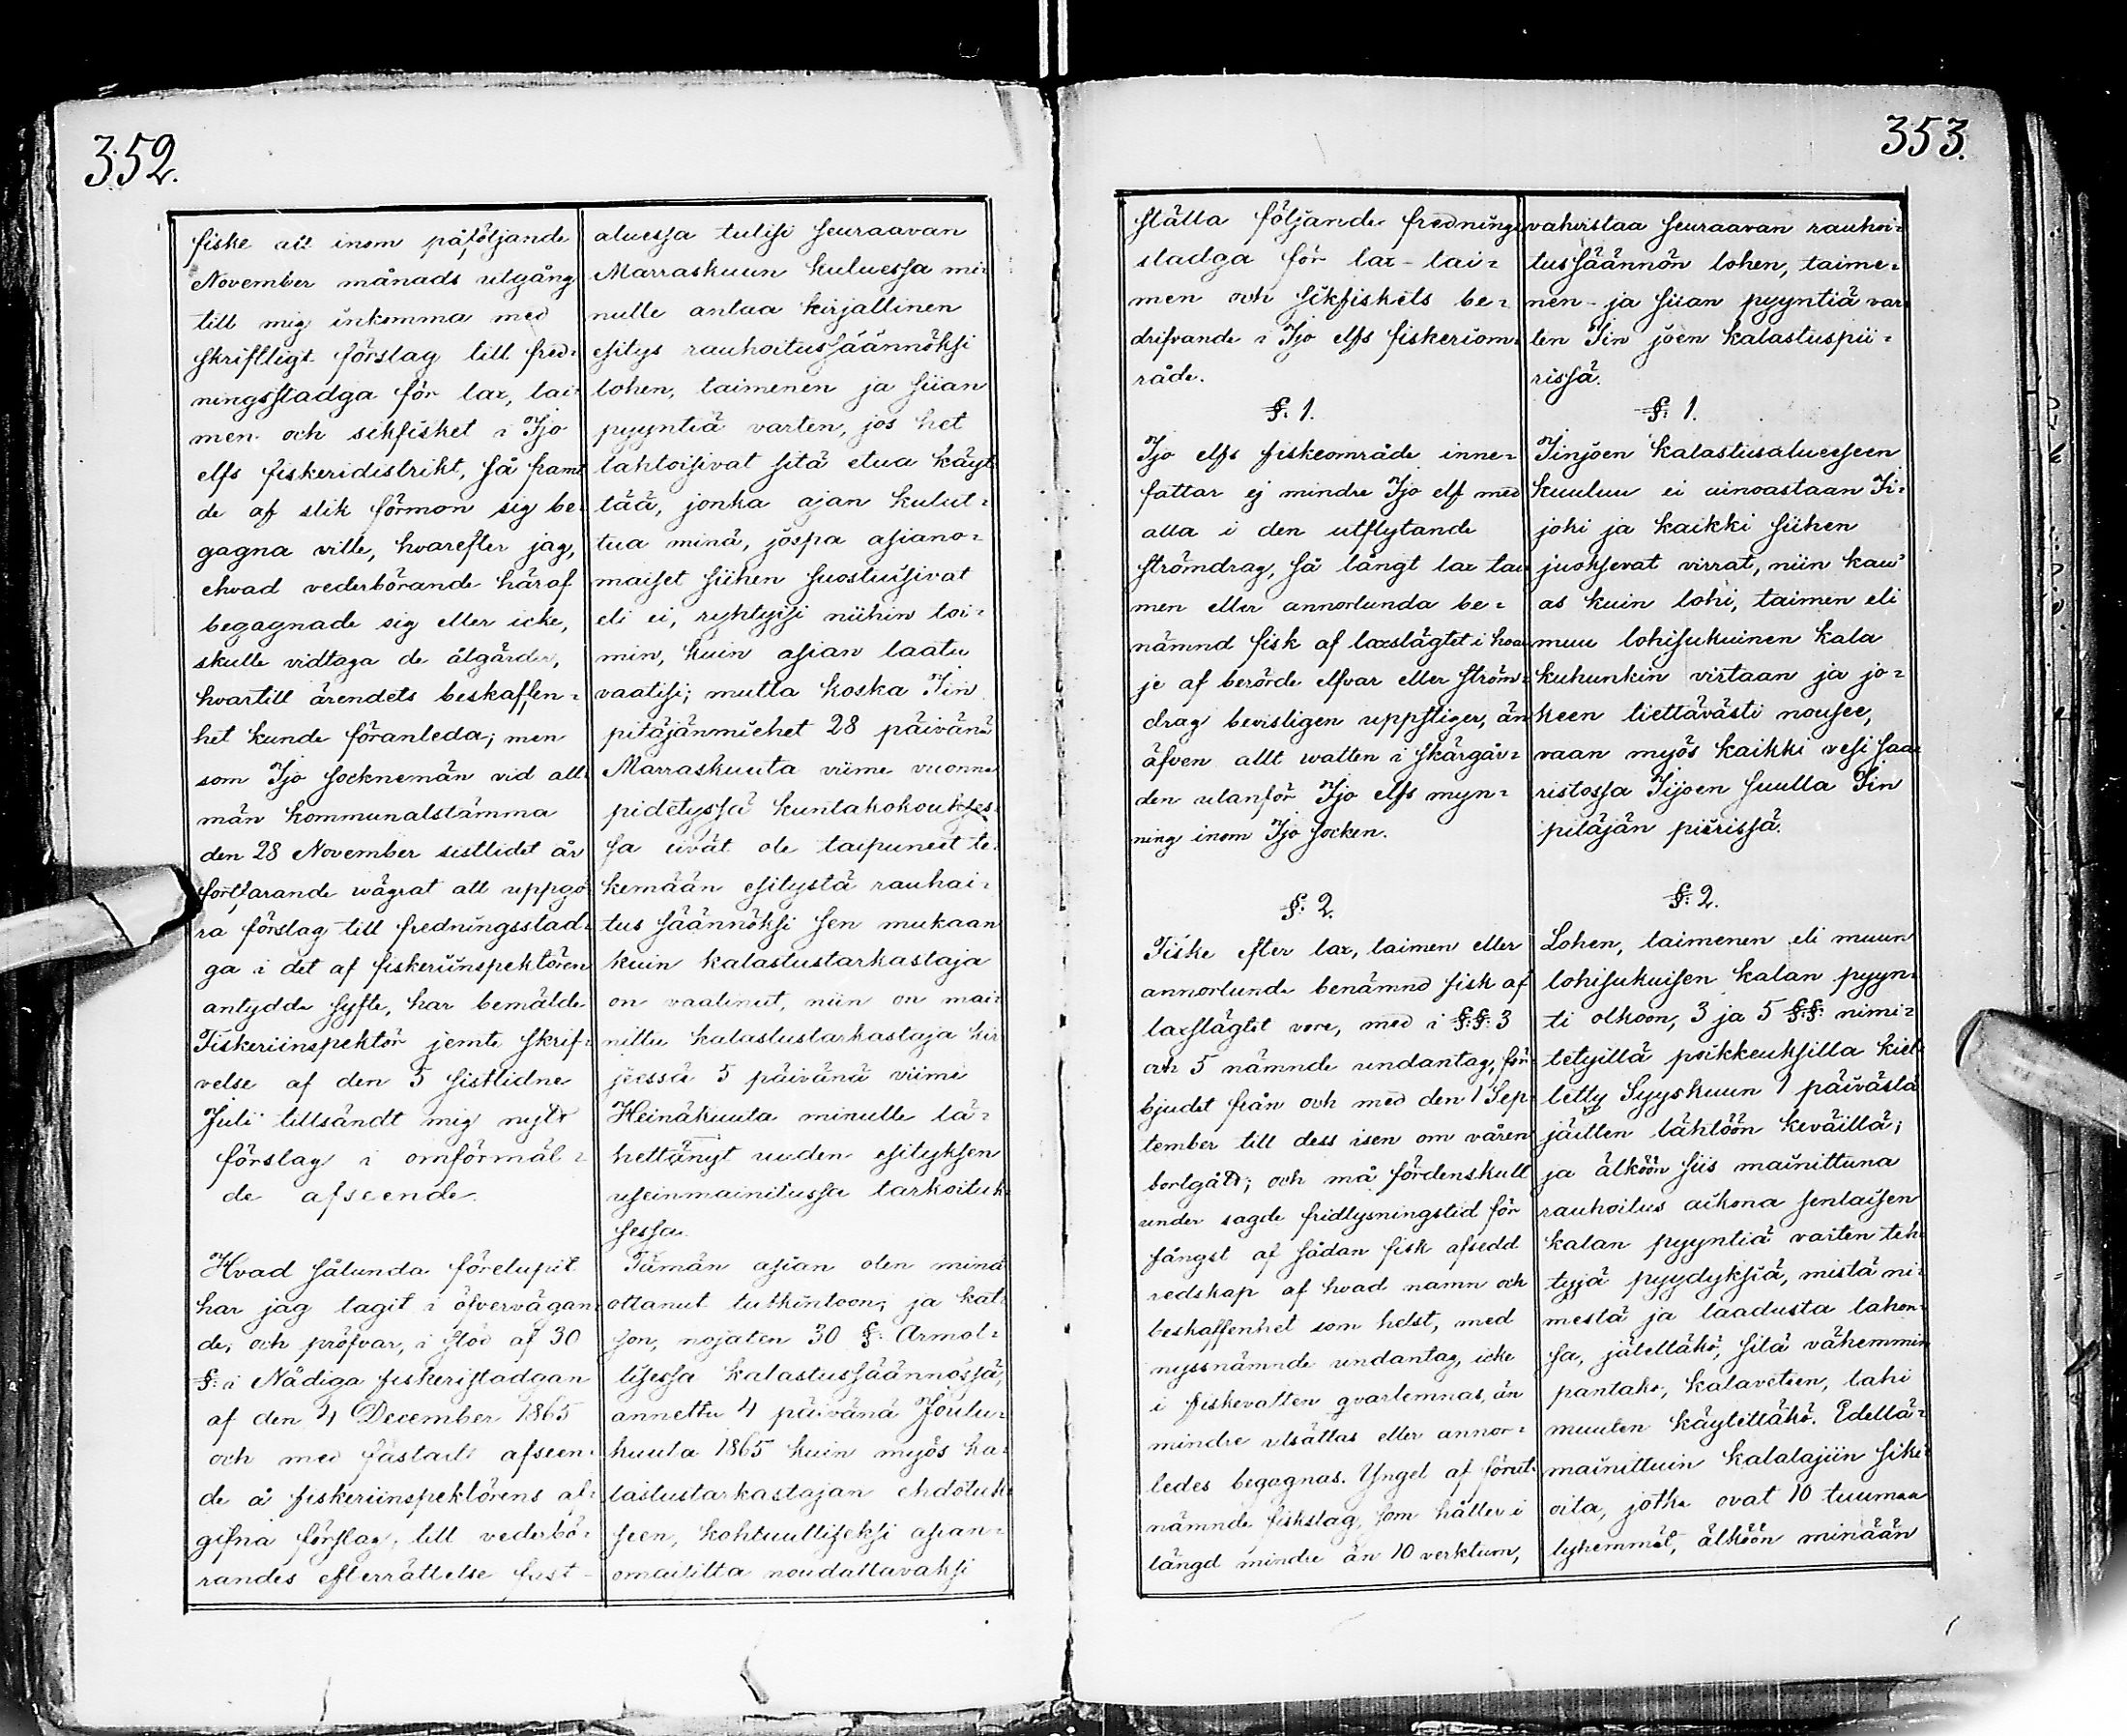 352.
fiske att inom påföljande
November månads utgång
till mig inkomma med
skriftligt förslag till fred-
ningsstadga för lax, tai-
men och sikfisket i Ijo
elfs fiskeridistrikt, så framt
de af slik förmon sig be-
gagna ville, hvarefter jag,
ehvad vederbörande häraf
begagnade sig eller icke,
skulle vidtaga de åtgärder,
hvartill ärendets beskaffen-
het kunde föranleda; men
som Ijo socknemän vid all-
män kommunalstämma
den 28 November sistlidet år
fortfarande wägrat att uppgö-
ra förslag till fredningsstad-
ga i det af fiskeriinspektören
antydda syfte, har bemälde
Fiskeriinspektör jemte skrif-
velse af den 5 sistlidne
Juli tillsändt mig nytt
förslag i omförmäl-
de afseende.
Hvad sålunda förelupit
har jag tagit i öfvervägan-
de, och pröfvar, i stöd af 30
§: i Nådiga fiskeristadgan
af den 4 December 1865
och med fästadt afseen-
de å fiskeriinspektörens af-
gifna förslag, till vederbö-
randes efterrättelse fast-
aluessa tulisi seuraavan
Marraskuun kuluessa mi-
nulle antaa kirjallinen
esitys rauhoitussäännöksi
lohen, taimenen ja siian
pyyntiä varten, jos het
tahtoisivat sitä etua käyt-
tää, jonka ajan kulut-
tua minä, jospa asiano-
maiset siihen suostuisivat
eli ei, ryhtyisi niihin toi-
min, kuin asian laatu
vaatisi; mutta koska Iin
pitäjänmiehet 28 päivänä
Marraskuuta viime vuonna
pidetyssä kuntakokoukses-
sa eivät ole taipuneet te-
kemään esitystä rauhai-
tus säännöksi sen mukaan
kuin kalastustarkastaja
on vaatinut, niin on mai-
nittu kalastustarkastaja kir-
jeessä 5 päivänä viime
Heinäkuuta minulle lä-
hettänyt uuden esityksen
useinmainitussa tarkoituk-
sessa.
Tämän asian olen minä
ottanut tutkintoon; ja kat-
son, nojaten 30 §: Armol-
lisessa kalastussäännössä,
annettu 4 päivänä Joulu-
kuuta 1865 kuin myös ka-
lastustarkastajan ehdotuk-
seen, kohtuulliseksi asian-
omaisilta noudattavaksi
353.
ställa följande frednings
stadga för lax-tai-
men och sikfiskets be-
drifvande i Ijo elfs fiskeriom-
råde.
§: 1.
Ijo elfs fiskeområde inne-
fattar ej mindre Ijo elf med
alla i den utflytande
strömdrag, så långt lax tai-
men eller annorlunda be-
nämnd fisk af laxslägtet i hvar-
je af berörde elfvar eller ström-
drag bevisligen uppstiger, än
äfven allt watten i skärgår-
den utanför Ijo elfs myn-
ning inom Ijo socken.
§: 2.
Fiske efter lax, taimen eller
annorlunda benämnd fisk af
laxslägtet vare, med i §:§: 3
och 5 nämnde undantag, för-
bjudet från och med den 1 Sep-
tember till dess isen om våren
bortgått; och må fördenskull
under sagde fridlysningstid för
fångst af sådan fisk afsedd
redskap af hvad namn och
beskaffenhet som helst, med
nyssnämnde undantag, icke
i fiskevatten qvarlemnas, än
mindre utsättas eller annor-
ledes begagnas. Yngel af förut-
nämnde fiskslag, som håller i
längd mindre än 10 verktum,
vahvistaa seuraavan rauhoi-
tussäännön lohen, taime-
nen- ja siian pyyntiä var-
ten Iin joen kalastuspii-
rissä.
§: 1.
Iinjoen kalastusalueeseen
kuuluu ei ainoastaan Ii-
joki ja kaikki siihen
juoksevat virrat, niin kau-
as kuin lohi, taimen eli
muu lohisukuinen kala
kuhunkin virtaan ja jo-
keen tiettävästi nousee,
vaan myös kaikki vesi saa-
ristossa Iijoen suulla Iin
pitäjän piirissä.
§: 2.
Lohen, taimenen eli muun
lohisukuisen kalan pyyn-
ti olkoon, 3 ja 5 §:§: nimi-
tetyillä poikkeuksilla kiel-
letty Syyskuun 1 päivästä
jäitten lähtöön keväillä;
ja älköön siis mainittuna
rauhoitus aikona senlaisen
kalan pyyntiä varten teh-
tyjä pyydyksiä, mistä ni-
mestä ja laadusta tahan-
sa, jätettäkö, sitä vähemmin
pantako, kalaveteen, tahi
muuten käytettäkö. Edellä-
mainittuin kalalajiin siki-
oita, jotka ovat 10 tuumaa
lyhemmät, älköön minään